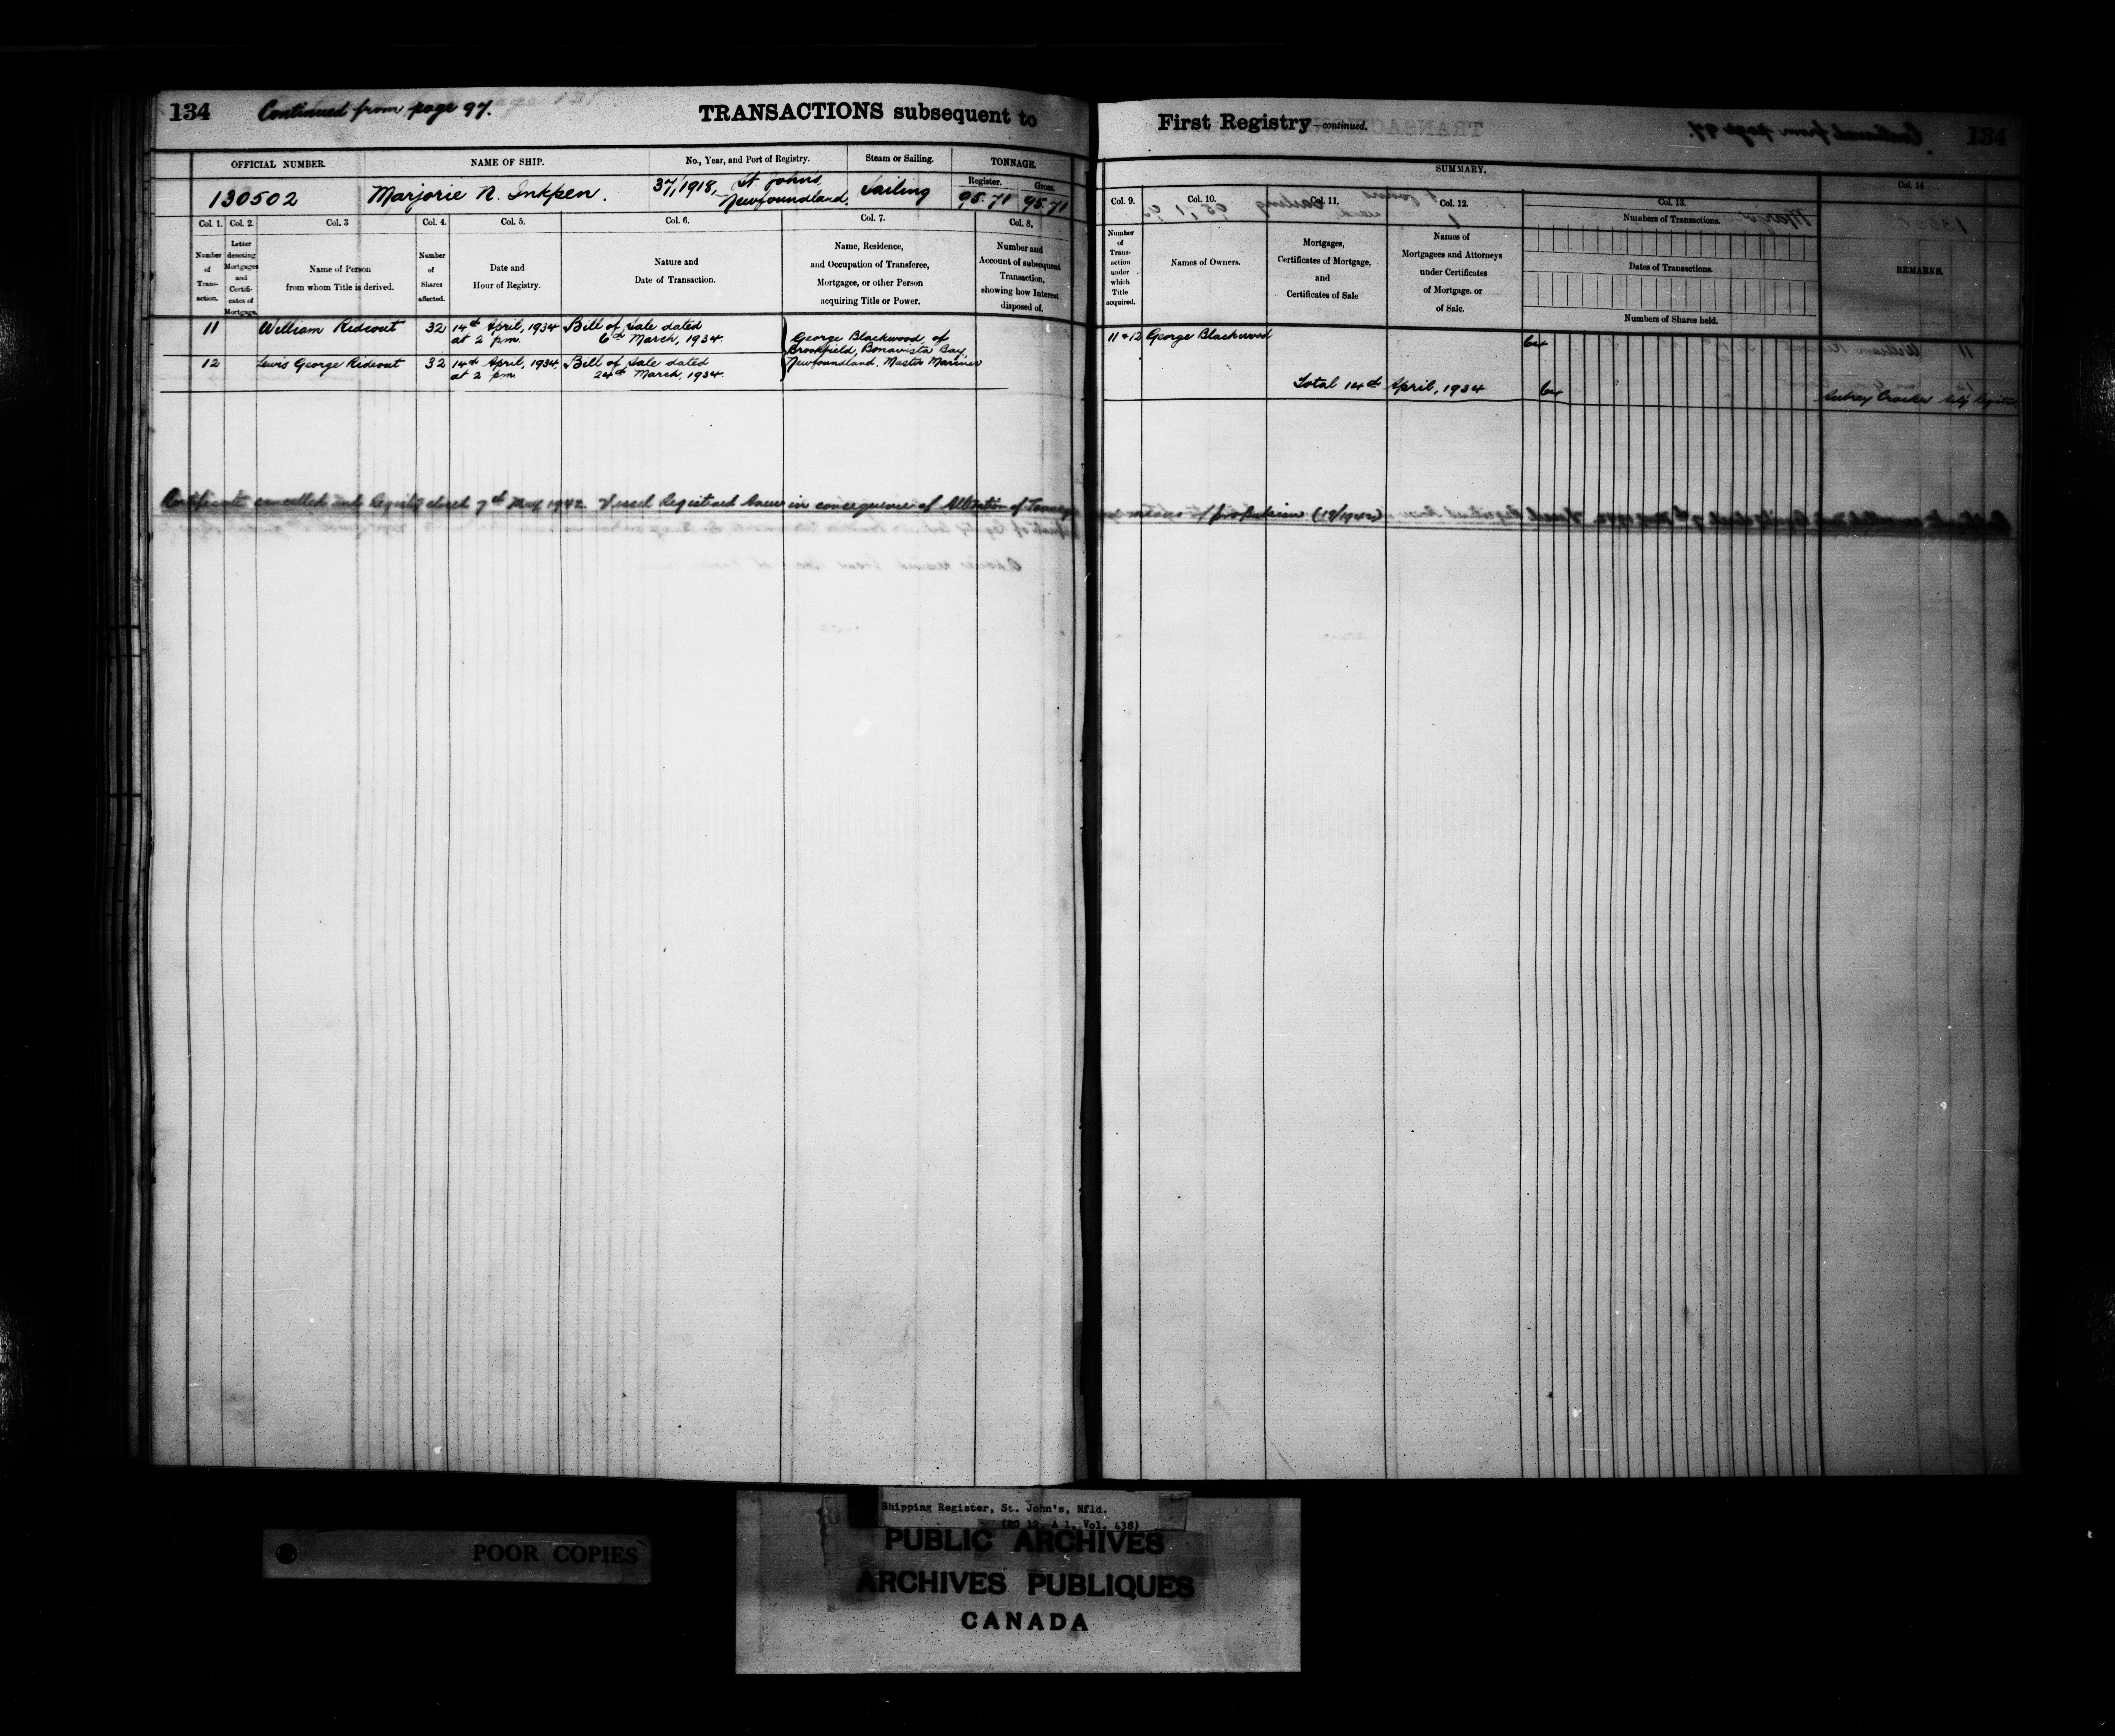 134 Continued from page 97. TRANSACTIONS subsequent to
OFFICIAL NUMBER. NAME OF SHIP. No., Year, and Port of Registry. Steam or Sailing. TONNAGE.
Register. Gross.
130502 Marjorie N. Inkpen. 37, 1918, St. Johns, Newfoundland. Sailing 95.71 95.71
Col. 1. Col. 2. Col. 3 Col. 4. Col. 5. Col. 6. Col. 7. Col. 8.
Number of Trans-action.
Letter denoting Mortgages and Certifi-cates of Mortgage.
Name of Person
from whom Title is derived.
Number of Shares affected.
Date and
Hour of Registry.
Nature and
Date of Transaction.
Name, Residence,
and Occupation of Transferee,
Mortgagee, or other Person
acquiring Title or Power.
Number and
Account of subsequent
Transaction,
showing how Interest
disposed of.
11 William Rideout 32 14th April, 1934 Bill of Sale dated
at 2 p.m. 6th March, 1934.
12 Lewis George Rideout 32 14th April, 1934. Bill of Sale dated
at 2 p.m. 24th March, 1934.
George Blackwood, of
Brookfield, Bonavista Bay,
Newfoundland. Master Mariner
Certificate cancelled and Registry closed 7th May, 1942. Vessel Registered Anew in consequence of Alteration of Tonnage
First Registry—continued.
SUMMARY.
Col. 9. Col. 10. Col. 11. Col. 12. Col. 13. Col. 14
Number of Trans-action under which Title acquired.
Names of Owners.
Mortgages,
Certificates of Mortgage,
and
Certificates of Sale
Names of
Mortgagees and Attorneys
under Certificates
of Mortgage. or
of Sale.
Numbers of Transactions.
Dates of Transactions.
Numbers of Shares held.
REMARKS.
11 & 12 George Blackwood 64
Total 14th April, 1934 64
Aubrey Crocker
means of propulsion (19/1942)
Shipping Register, St. John's, Nfld.
(RG 12, A 1, Vol. 438)
POOR COPIES
PUBLIC ARCHIVES
ARCHIVES PUBLIQUES
CANADA